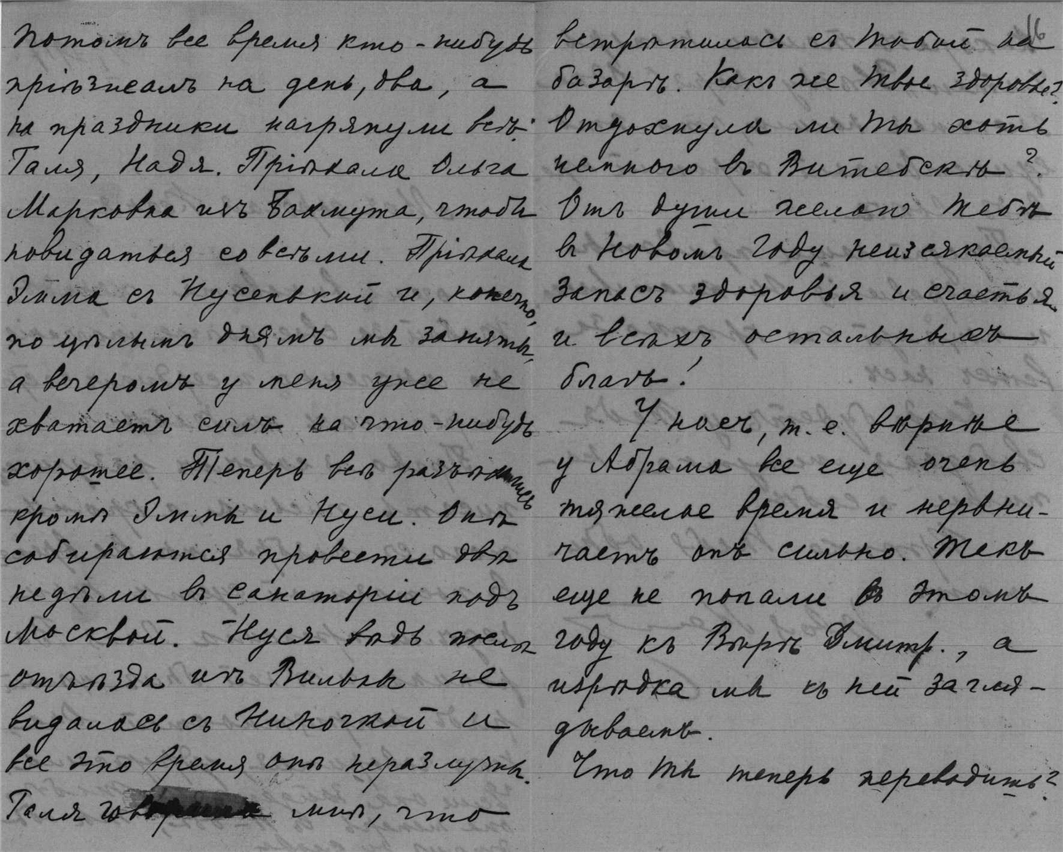 Потомъ все время кто-нибудь
пріѣзжалъ на день, два, а
на праздники нагрянули всѣ:
Галя, Надя. Пріѣхала Ольга
Марковна изъ Бахмута, чтобы
повидаться со всѣми. Пріѣхала
Эмма съ Нусенькой и, конечно,
по цѣлымъ днямъ мы заняты,
а вечеромъ у меня уже не
хватаетъ силъ на что-нибудь
хорошее. Теперь всѣ разъѣхались
кромѣ Эммы и Нуси. Онѣ
собираются провести двѣ
недѣли въ санаторіи подъ
Москвой. Нуся вѣдь послѣ
отъѣзда изъ Вильны не
видалась съ Ниночкой и
все это время онѣ неразлучны.
Галя говорила мнѣ, что
встрѣтилась съ тобой на
базарѣ. Какъ же твое здоровье?
Отдохнула ли ты хоть
немного въ Витебскѣ?
Отъ души желаю тебѣ
въ Новомъ году неизсякаемый
запасъ здоровья и счастья
и всѣхъ остальныхъ
благъ!
У насъ, т. е. вѣрнѣе
у Абрама все еще очень
тяжелое время и нервни-
чаетъ онъ сильно. Такъ
еще не попали въ этомъ
году къ Вѣрѣ Дмитр., а
изрѣдка мы къ ней загля-
дываемъ.
Что ты теперь переводишь?